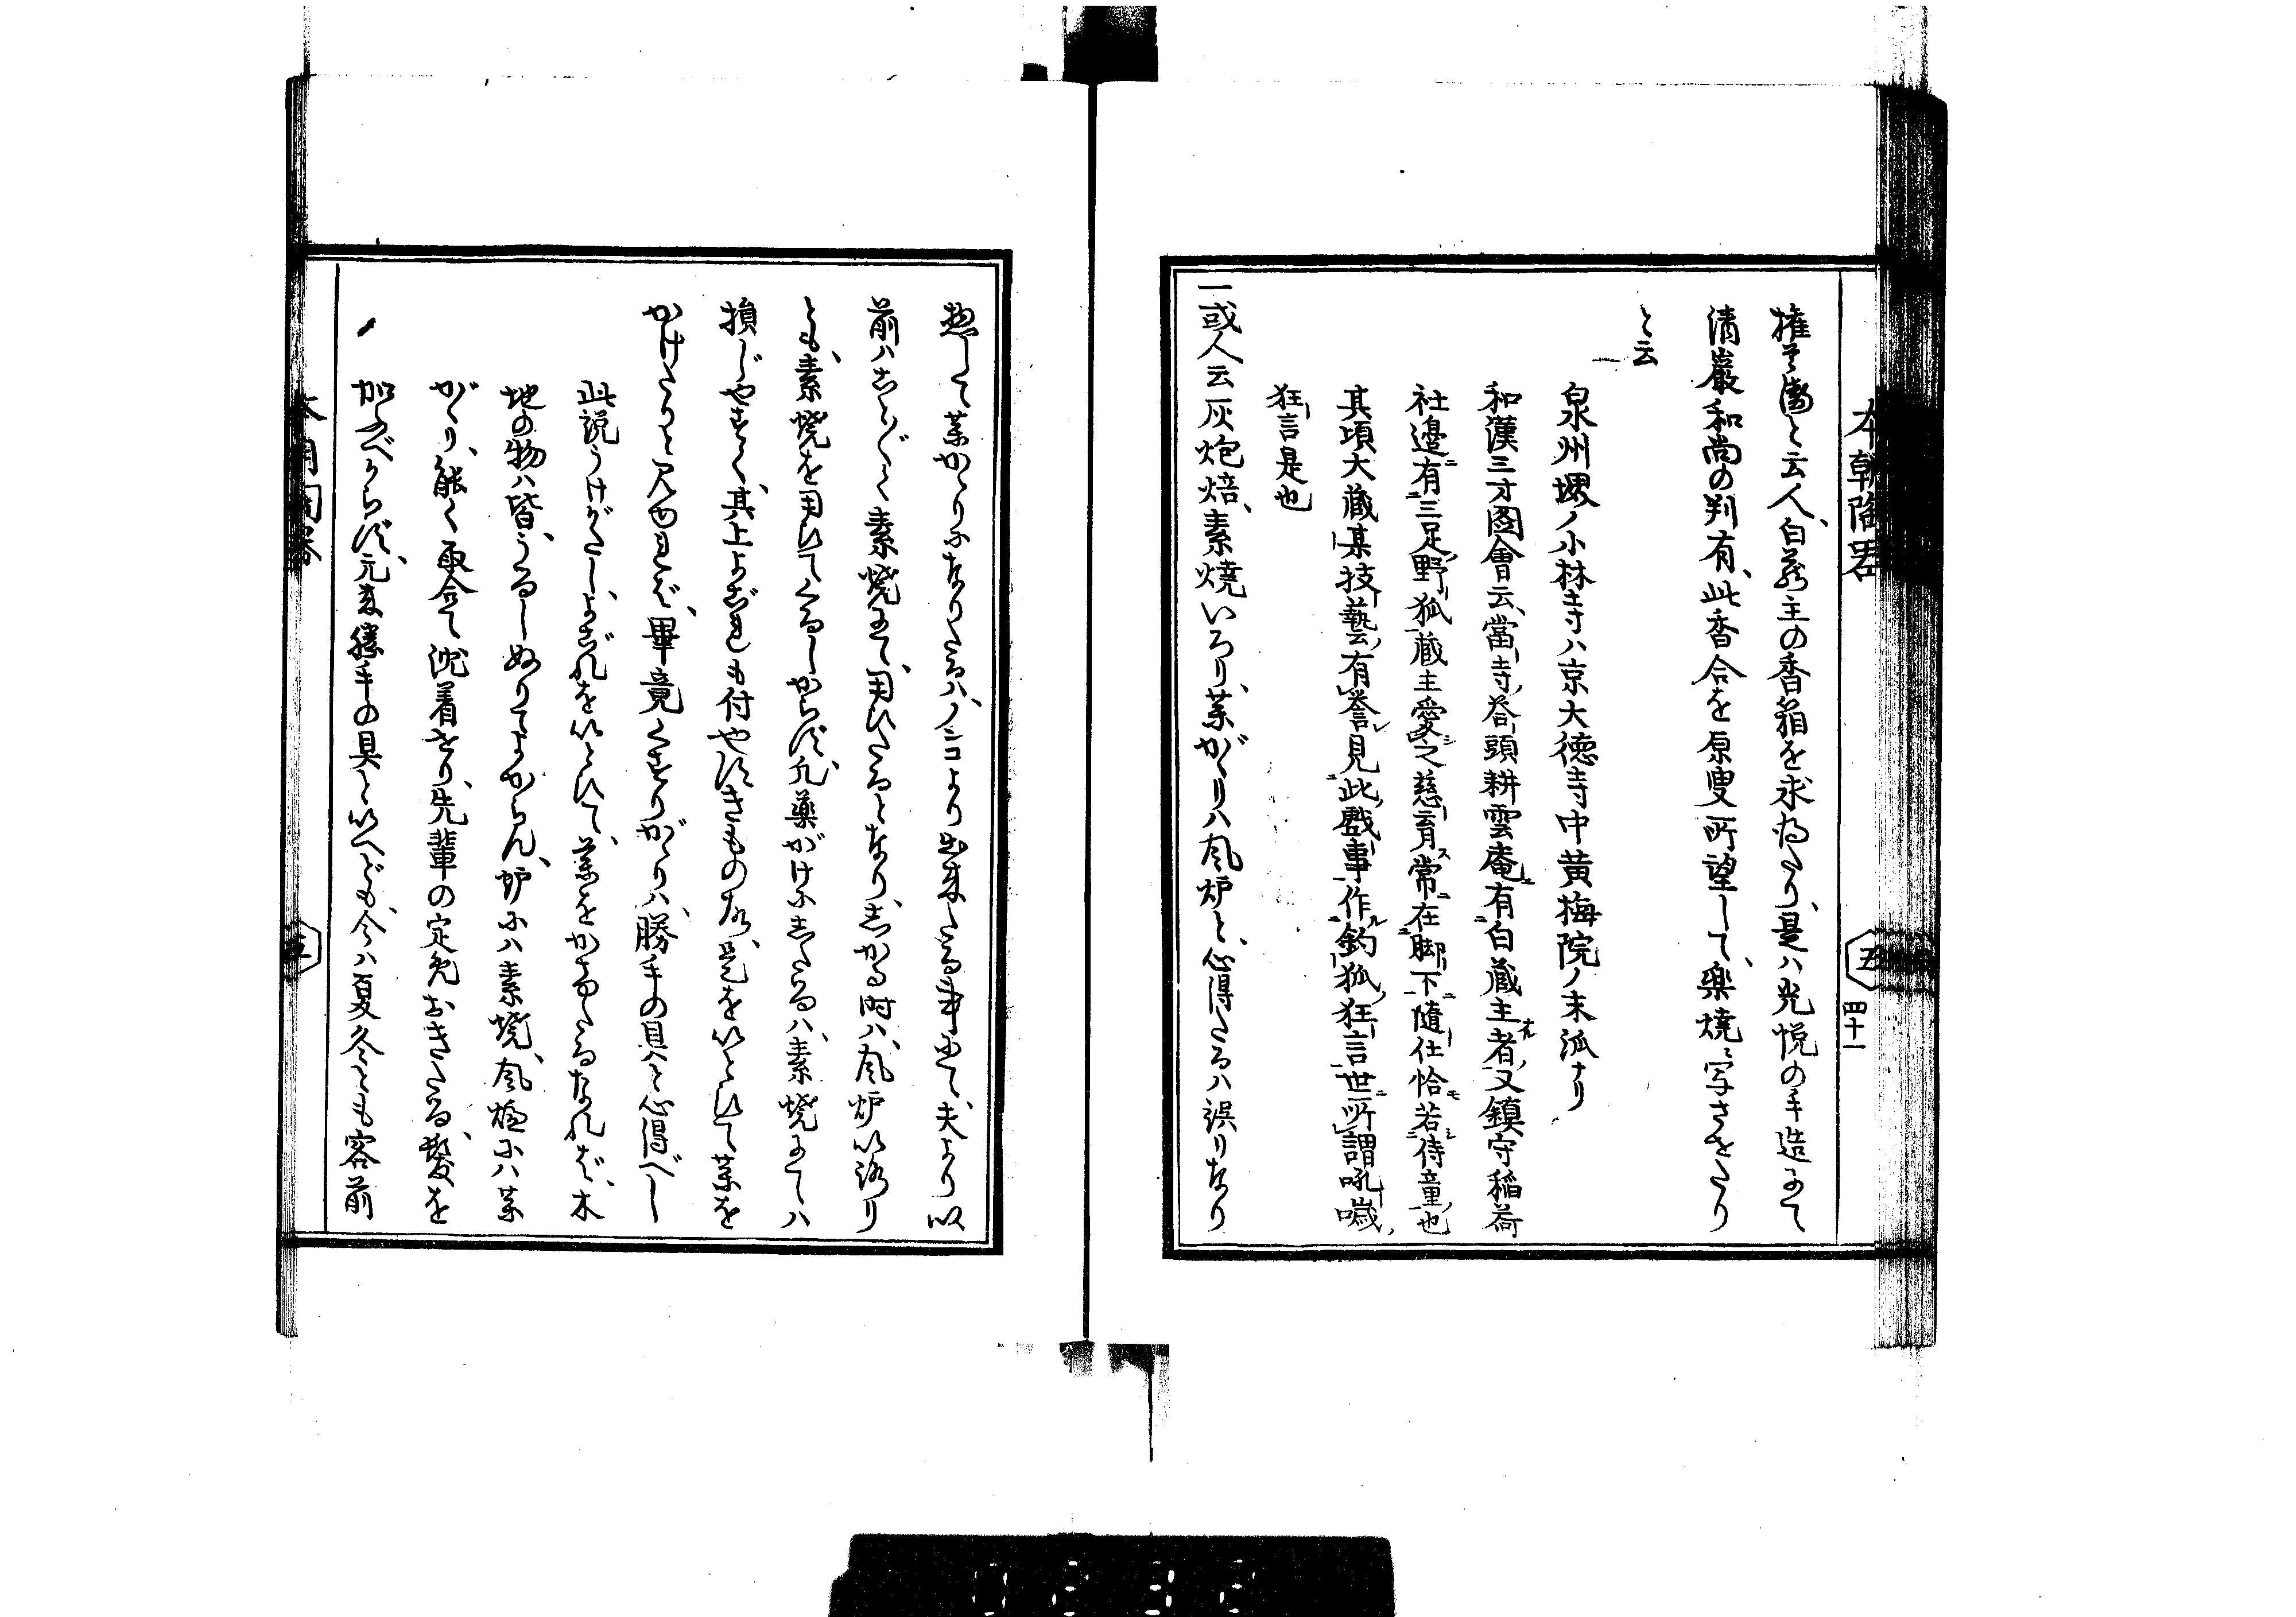 本朝陶器
五
四十一
權兵衞と云人、白蔵主の香箱を求めたり、是ハ光悦の手造にて
清巖和尚の判有、此香合を原叟所望して、樂燒ニ写させたり
と云
泉州堺ノ小林寺ハ京大德寺中黄梅院ノ末派ナリ
和漢三才圖會云、當寺ノ塔頭耕雲庵ニ有二白蔵主者一、又鎮守稲荷
社邊ニ有二三足ノ野狐一、蔵主愛シ之慈育ス常ニ在二脚下一隨仕恰モ若二侍童一也
其頃大蔵某技藝ノ有レ誉見二此戯事一作二釣狐ノ狂言一世ニ所謂吼噦ノ
狂言是也
一或人云灰炮焙、素燒いろり、薬がゝりハ風炉と、心得たるハ誤りなり
惣して薬かゝりになりたるハ、ノンコより出来たる事にて、夫より以
前ハことごとく素燒にて、用ひたるとなり、しかる時ハ、風炉いろり
とも、素燒を用ひてくるしからず、凡薬がけにしたるハ、素燒にてハ
損じやすく、其上よごれも付やすきものなれ、是をいとひて薬を
かけたりと見ゆれば、畢竟くすりがゝりハ、勝手の具と心得べし
此説うけがたし、よごれをいとひて、薬をかけたるなれば、木
地の物ハ皆、うるしぬりてよからん、炉にハ素燒、風炉にハ薬
がゝり、能く取合て沈着せり、先輩の定めおきたる、髪を
加ふべからず、元来勝手の具といへども、今ハ夏冬とも客前